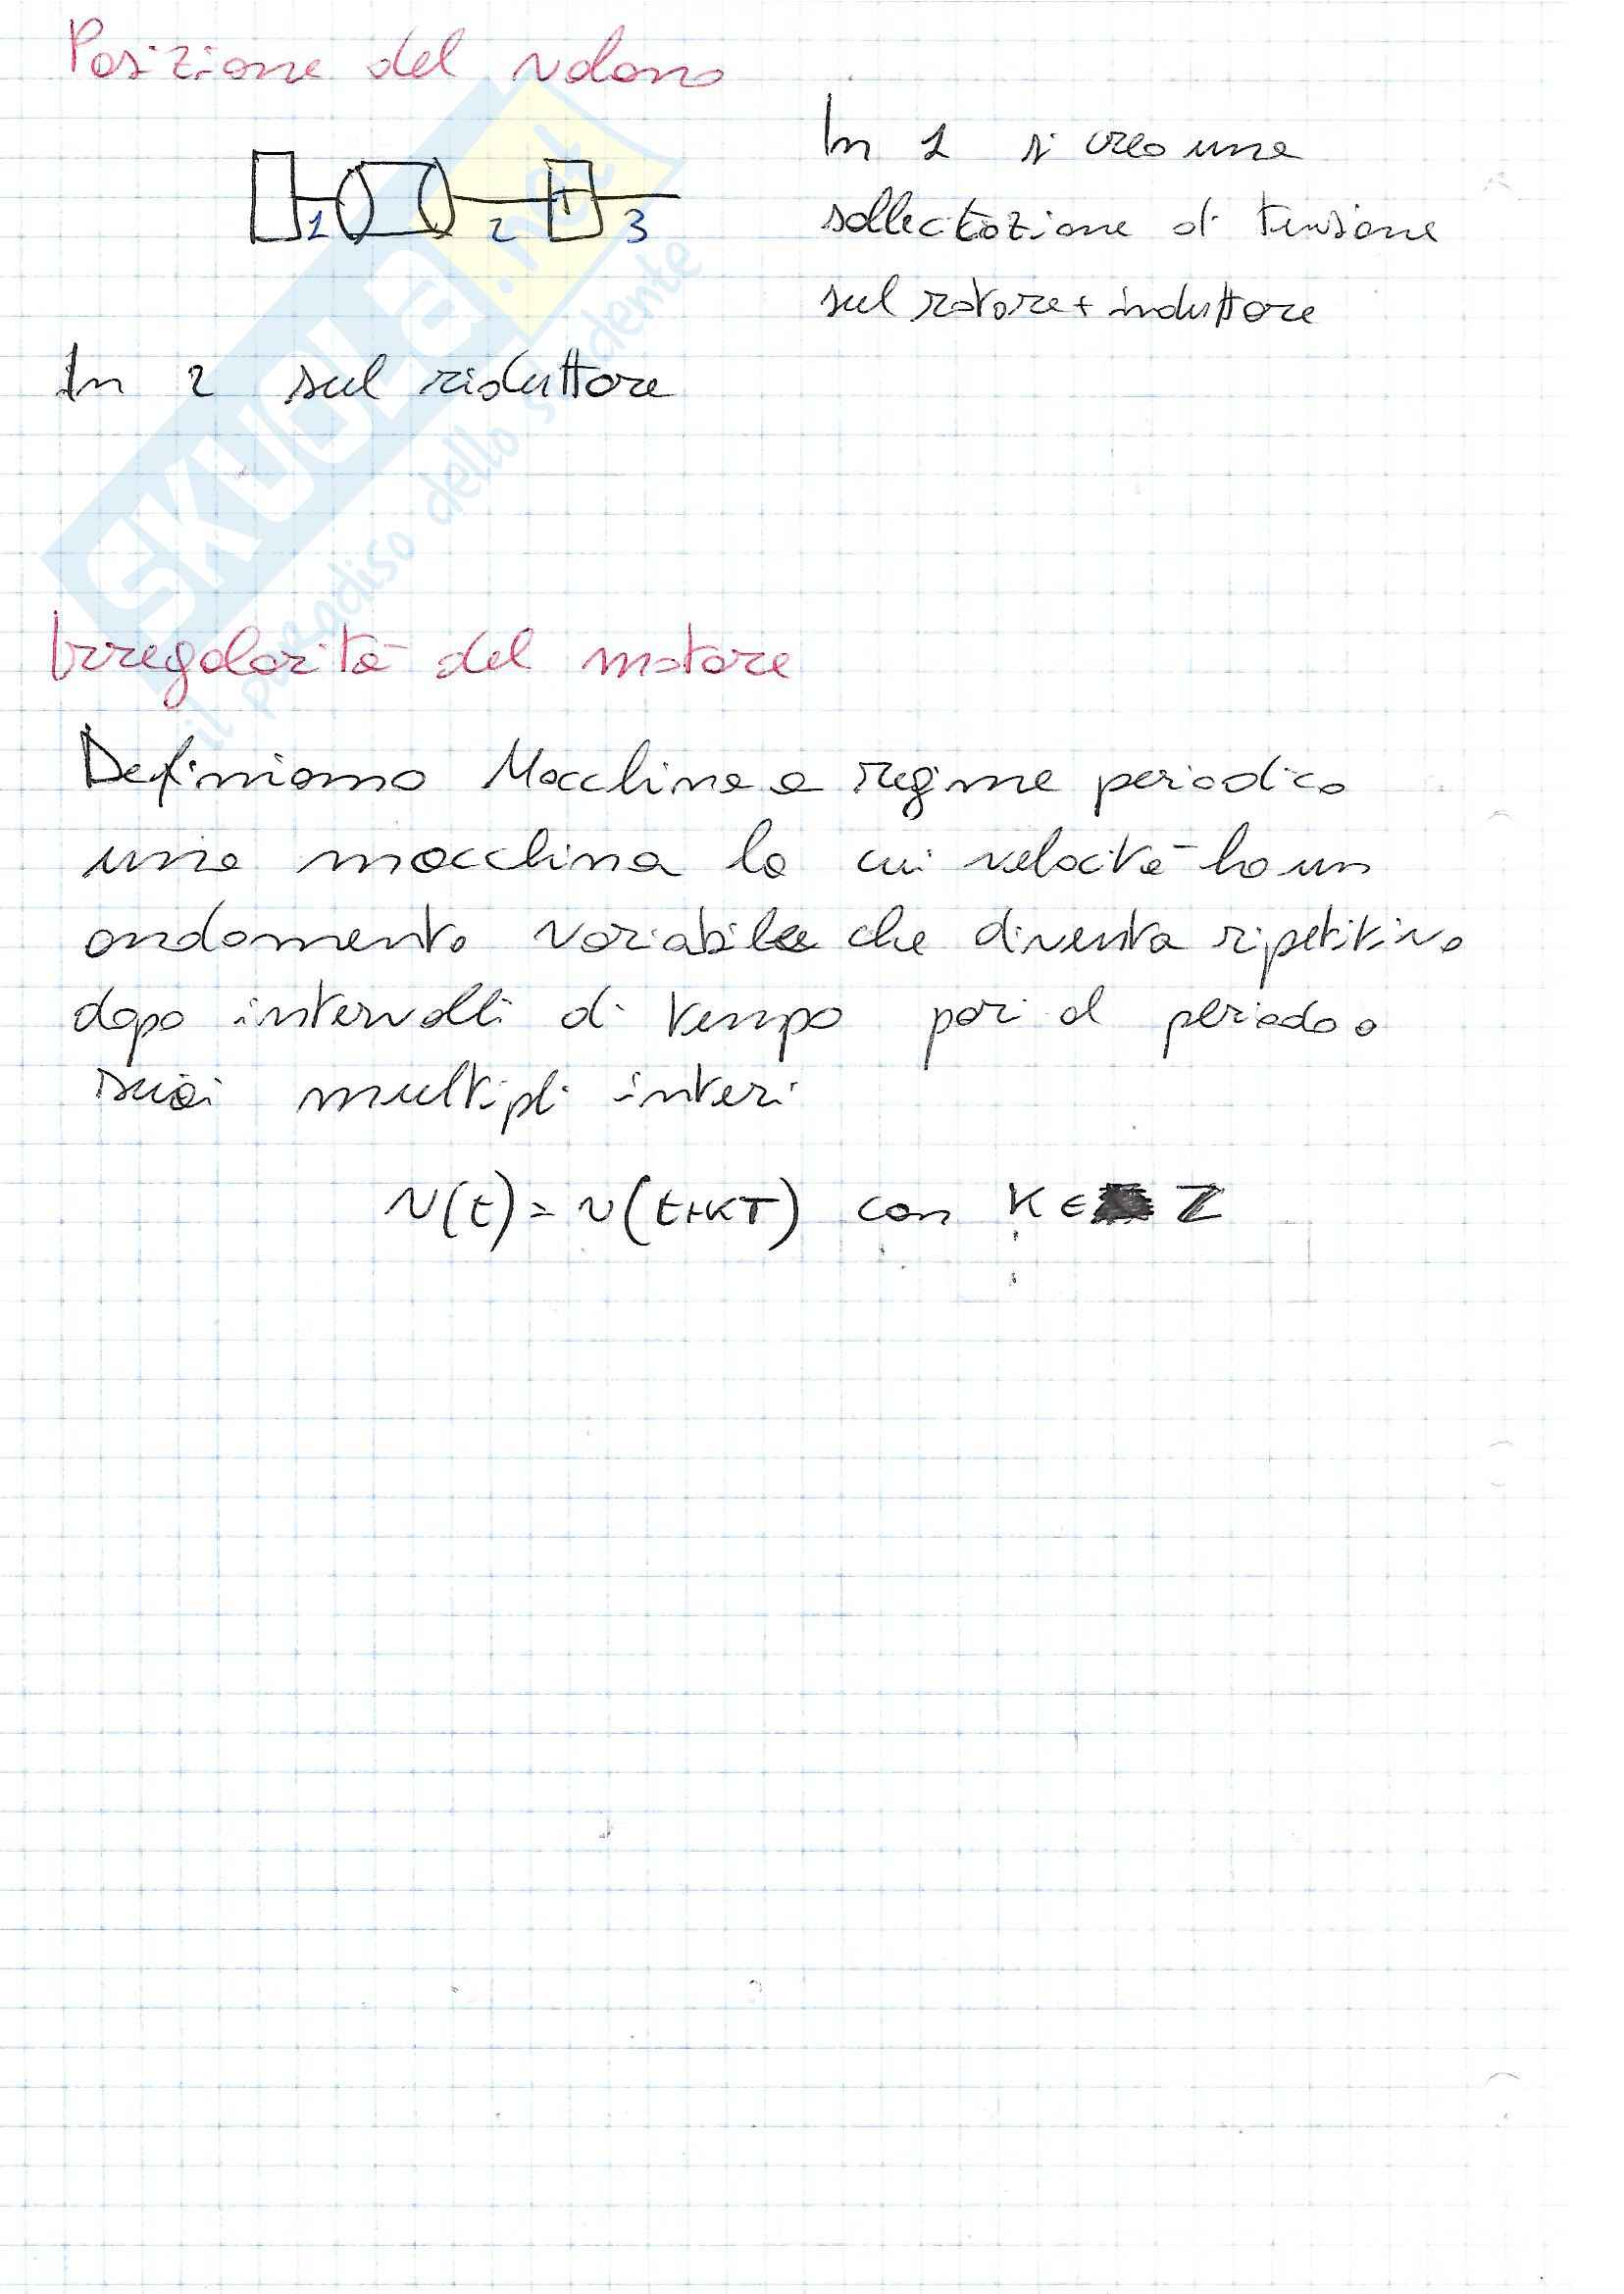 Posizione del volano
1 2 3
In 1 si crea una
sollecitazione di tensione
sul rotore + induttore
In 2 sul riduttore
SKUOLA.net
il paradiso dello studente
Irregolarità del motore
Definiamo Macchina a regime periodico
una macchina la cui velocità ha un
andamento variabile che diventa ripetitivo
dopo intervalli di tempo pari al periodo o
suoi multipli interi
v(t) = v(t+KT) con K ∈ Z